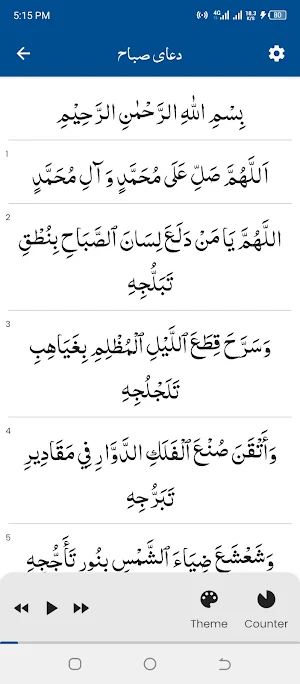 5:15 PM
4G 18.3 K/s 80
دعای صباح
بِسْمِ اللهِ الرَّحْمٰنِ الرَّحِيْمِ
1
اَللَّهُمَّ صَلِّ عَلَى مُحَمَّدٍ وَ آلِ مُحَمَّدٍ
2
اللَّهُمَّ يَا مَنْ دَلَعَ لِسَانَ ٱلصَّبَاحِ بِنُطْقِ
تَبَلُّجِهِ
3
وَسَرَّحَ قِطَعَ ٱللَّيْلِ ٱلْمُظْلِمِ بِغَيَاهِبِ
تَلَجْلُجِهِ
4
وَأَتْقَنَ صُنْعَ ٱلْفَلَكِ ٱلدَّوَّارِ فِي مَقَادِيرِ
تَبَرُّجِهِ
5
وَشَعْشَعَ ضِيَاءَ ٱلشَّمْسِ بِنُورِ تَأَجُّجِهِ
Theme Counter